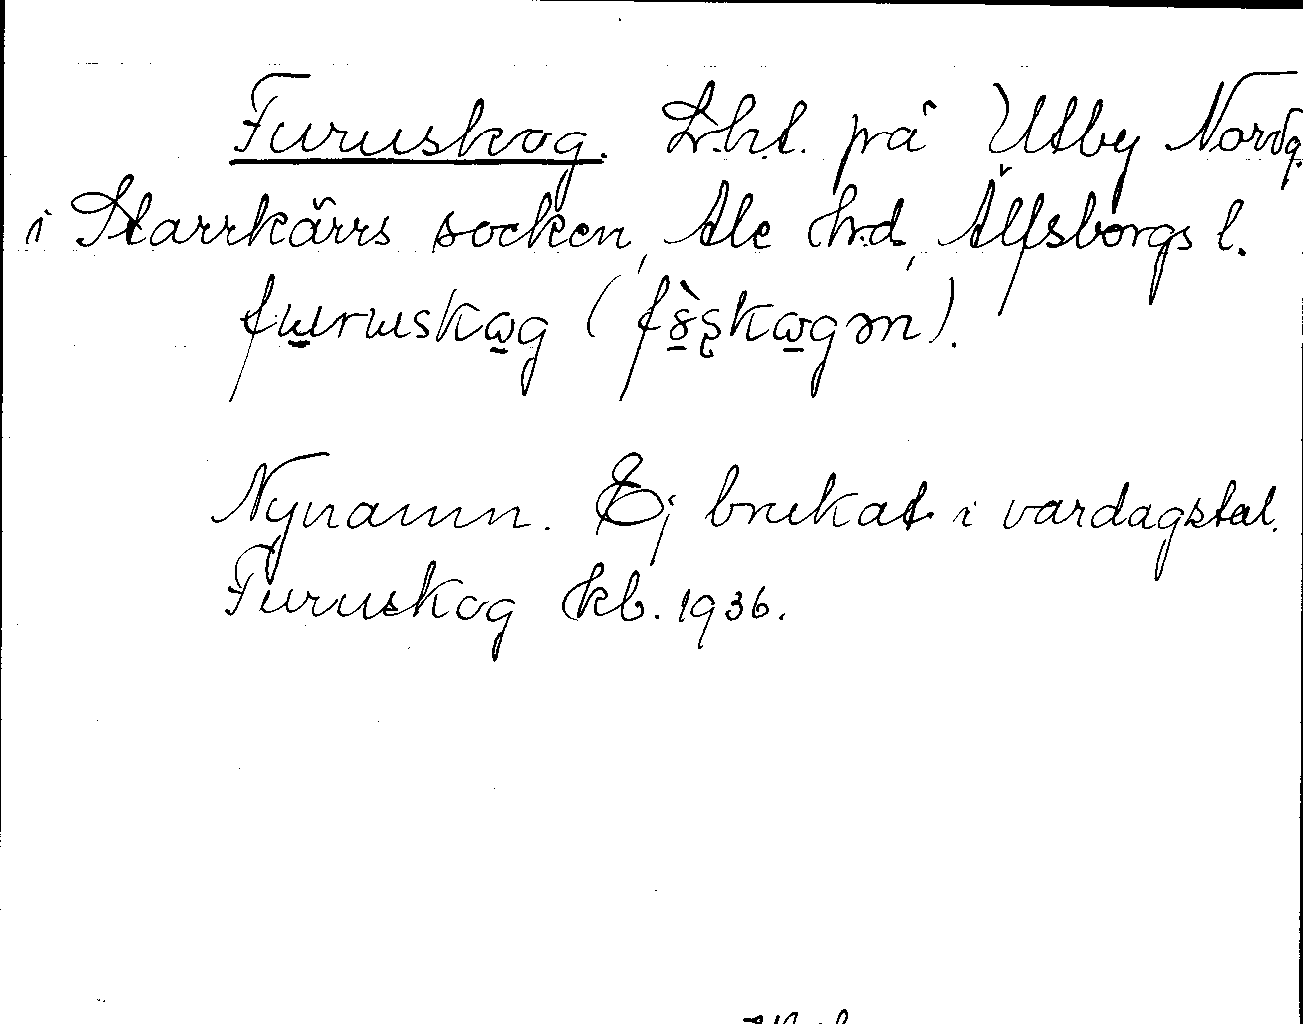 Furuskog. L.h.t. på Utby Nordg.
i Starrkärrs socken, Ale hd, Älfsborgs l.
furuskog (fòskogən).
Nynamn. Ej brukat i vardagstal.
Furuskog kb. 1936.